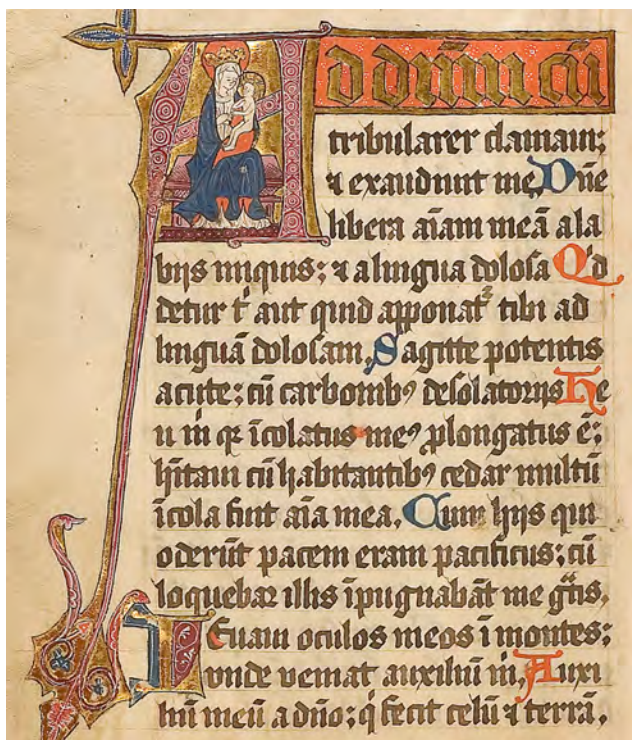 Ad dn̄m cū
tribularer clamaui;
⁊ exaudiuit me Dn̄e
libera aīam meā a la
biis iniquis; ⁊ a lingua dolosa Qͥd
detur tͥ aut quid apponatᷣ tibi ad
linguā dolosam. Sagitte potentis
acute; cū carbonibꝰ desolatoriis he
u mͥ qꝛ īcolatus meꝰ ꝓlongatus ē;
hītaui cū habitantibꝰ cedar multū
īcola fuit aīa mea. Cum hiis qui
oderūt pacem eram pacificus; cū
loquebar illis īpugnabāt me gͣtis.
Leuaui oculos meos ī montes;
vnde veniat auxiliū mͥ. Auxi
liū meū a dn̄o; qͥ fecit celū ⁊ terrā.